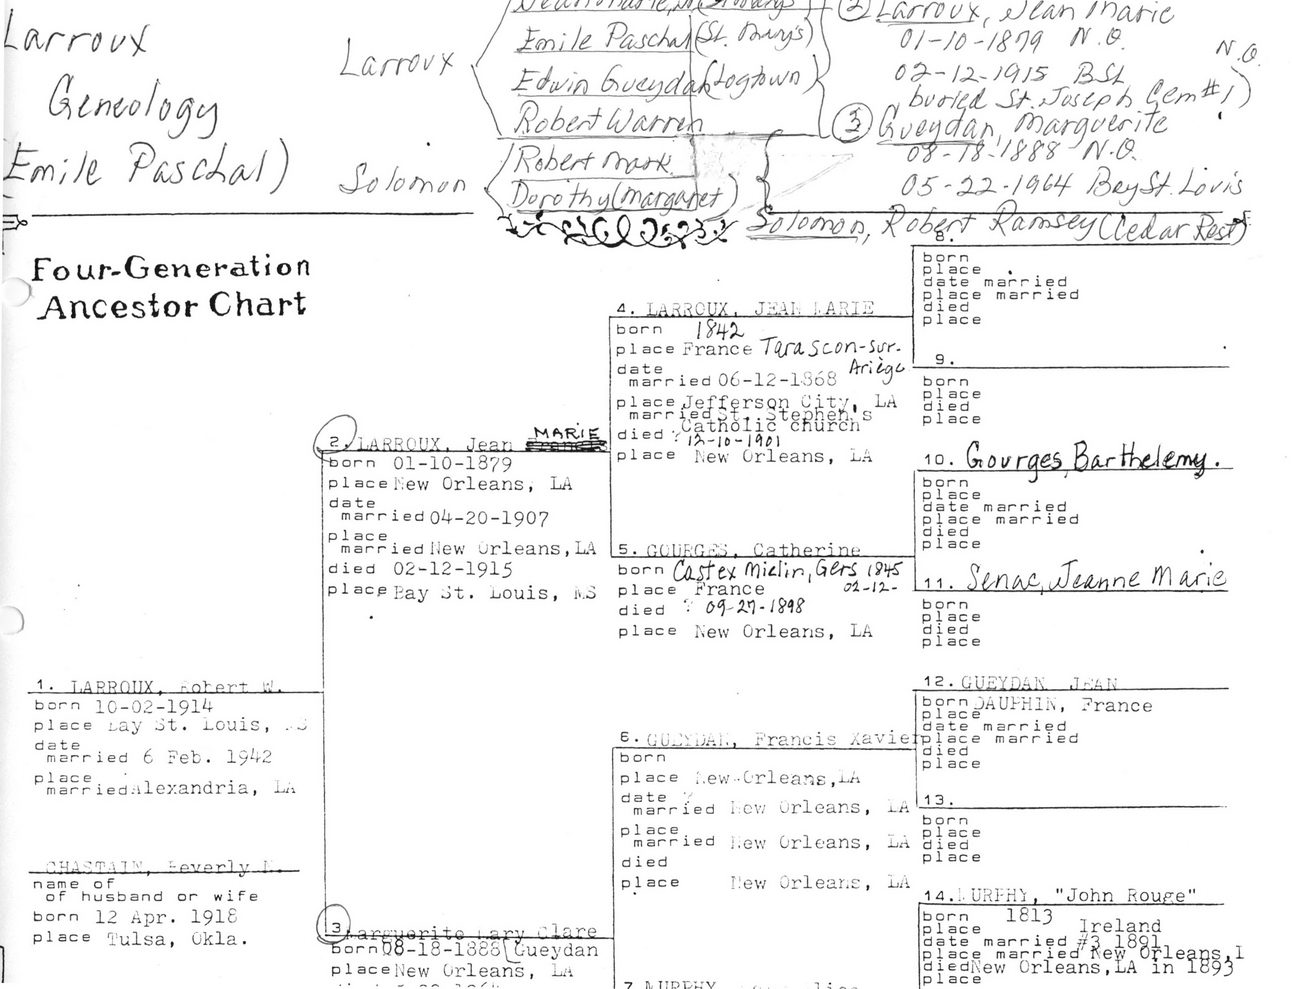 Larroux
Geneology
Emile Paschal)
Larroux
Emile Paschal (St. Mary's)
Edwin Gueydan (Logtown)
Robert Warren
Solomon
Robert Mark
Dorothy (Margaret)
(2) Larroux, Jean Marie
01-10-1879 N.O.
02-12-1915 BSL
buried St. Joseph Cem #1) N.O.
(3) Gueydan, Marguerite
08-18-1888 N.O.
05-22-1964 Bay St. Lovis
Solomon, Robert Ramsey (Cedar Rest)
Four-Generation
Ancestor Chart
1. LARROUX, Robert W.
born 10-02-1914
place Bay St. Louis, MS
date
married 6 Feb. 1942
place
married Alexandria, LA
CHASTAIN, Beverly
name of
of husband or wife
born 12 Apr. 1918
place Tulsa, Okla.
2. LARROUX, Jean MARIE
born 01-10-1879
place New Orleans, LA
date
married 04-20-1907
place
married New Orleans, LA
died 02-12-1915
place Bay St. Louis, MS
3. Marguerite Mary Clare
born 08-18-1888 (Gueydan
place New Orleans, LA
4. LARROUX, JEAN MARIE
born 1842
place France Tarascon-sur-
Ariège
date
married 06-12-1868
place Jefferson City, LA
married St. Stephen's
Catholic church
died ? 12-10-1901
place New Orleans, LA
5. GOURGES, Catherine
born Castex Mielin, Gers 1845
place France 02-12-
died ? 09-27-1898
place New Orleans, LA
6. GUEYDAN, Francis Xavier
born
place New Orleans, LA
date ?
married New Orleans, LA
place
married New Orleans, LA
died
place New Orleans, LA
7. MURPHY
8.
born
place
date married
place married
died
place
9.
born
place
died
place
10. Gourges, Barthelemy.
born
place
date married
place married
died
place
11. Senac, Jeanne Marie
born
place
died
place
12. GUEYDAN JEAN
born DAUPHIN, France
place
date married
place married
died
place
13.
born
place
died
place
14. MURPHY, "John Rouge"
born 1813
place Ireland
date married #3 1891
place married New Orleans, L
died New Orleans, LA in 1893
place